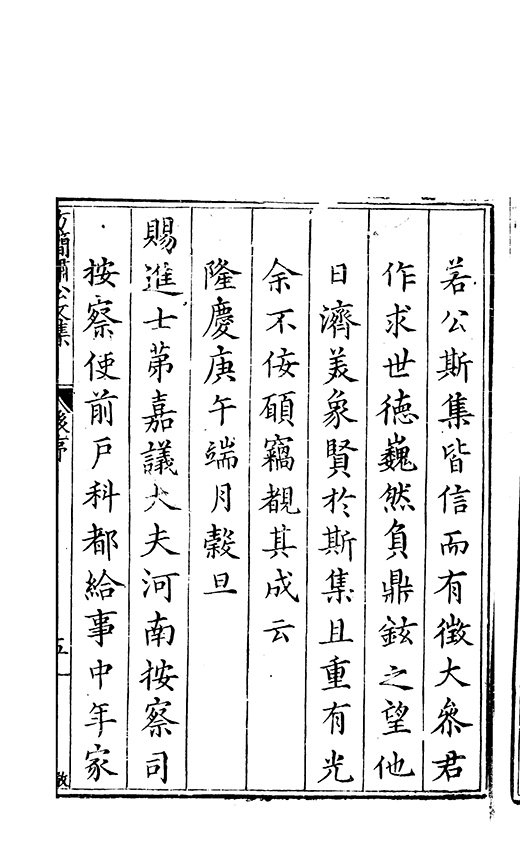 若公斯集皆信而有徵大叅君
作求世德巍然負鼎鉉之望他
日濟美象賢於斯集且重有光
余不佞碩竊覩其成云
隆慶庚午端月穀旦
賜進士苐嘉議大夫河南按察司
按察使前戶科都給事中年家
方簡肅公文集
後序
五